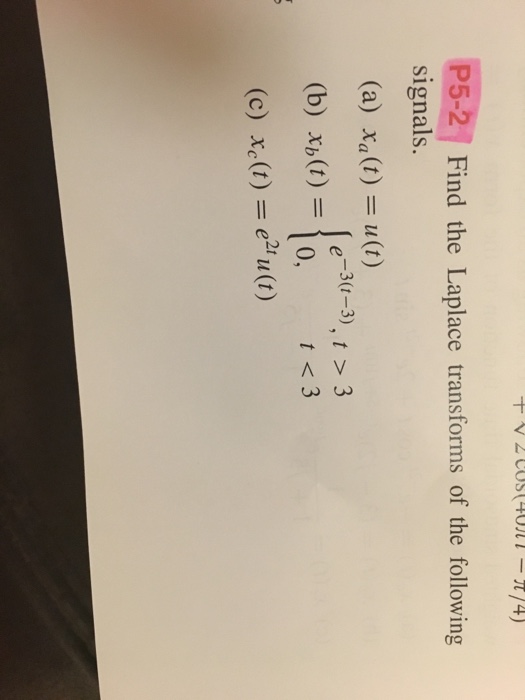 + √2 cos(40πt − π/4)
P5-2 Find the Laplace transforms of the following
signals.
(a) xₐ(t) = u(t)
(b) x_b(t) = { e^{−3(t−3)}, t > 3
0, t < 3
(c) x_c(t) = e^{2t}u(t)